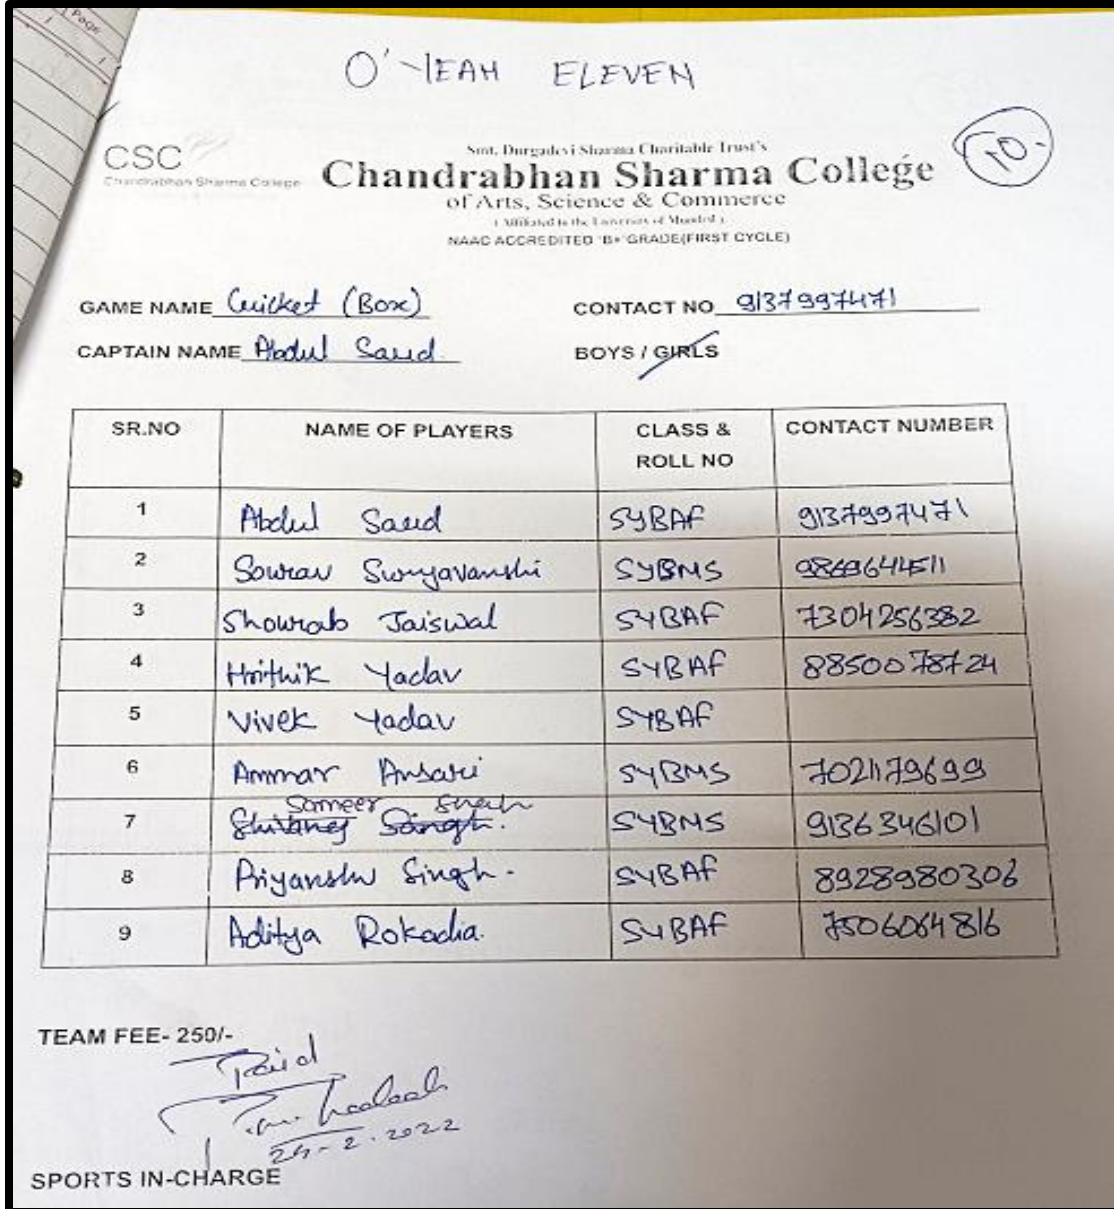 Page
O'-TEAM ELEVEN
10.
CSC
Chandrabhan Sharma College
Smt. Durgadevi Sharma Charitable Trust's
Chandrabhan Sharma College
of Arts, Science & Commerce
( Affiliated to the University of Mumbai )
NAAC ACCREDITED 'B+' GRADE(FIRST CYCLE)
GAME NAME Cricket (Box) CONTACT NO 9137997471
CAPTAIN NAME Abdul Saud BOYS / GIRLS
SR.NO NAME OF PLAYERS CLASS & ROLL NO CONTACT NUMBER
1 Abdul Saud SYBAF 9137997471
2 Sourav Suryavanshi SYBMS 9869644511
3 Shourab Jaiswal SYBAF 7304256382
4 Hrithik Yadav SYBAF 8850078724
5 Vivek Yadav SYBAF
6 Ammar Ansari SYBMS 7021179699
7 Sameer Shaikh SYBMS 9136346101
8 Priyanshu Singh. SYBAF 8928980306
9 Aditya Rokadia. SYBAF 7506064816
TEAM FEE- 250/-
Paid
2022
SPORTS IN-CHARGE